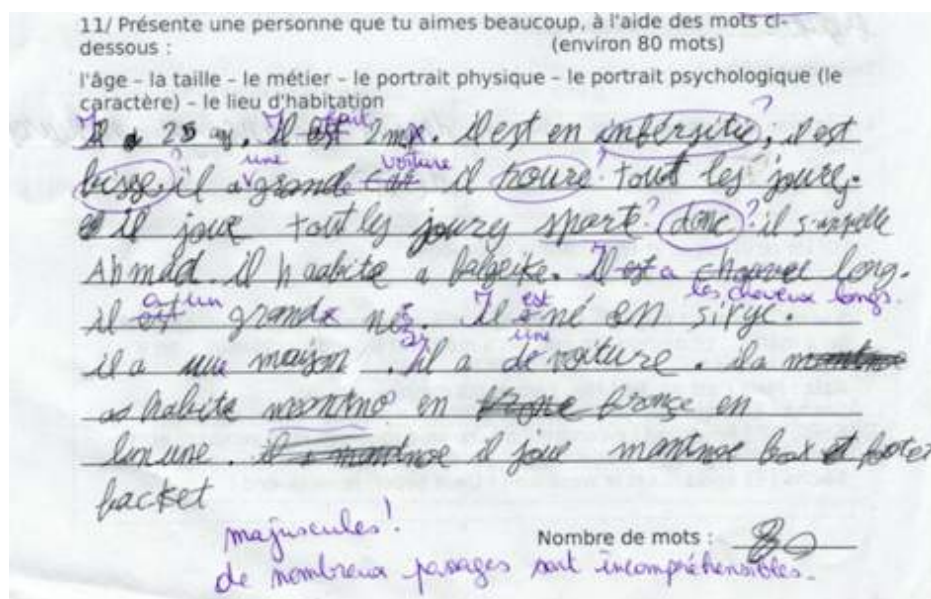 11/ Présente une personne que tu aimes beaucoup, à l'aide des mots ci-
dessous : (environ 80 mots)
l'âge – la taille – le métier – le portrait physique – le portrait psychologique (le
caractère) – le lieu d'habitation
I I fait ?
Il a 25 ans. Il est 2m. Il est en , il est
une voiture ? ?
bisse. il a grande car il tout les jours.
? ?
il joue tout les jours sporte donc il s'appelle
Ahmad. il haabite a belgeike. Il est a long.
a un I est les cheveux longs.
il est grande né. Il né en sirye.
une
il a une maison. il a de voiture. il a
habite en françe en
. il joue box et footer
backet
majuscules!
de nombreux passages sont incompréhensibles.
Nombre de mots : 80